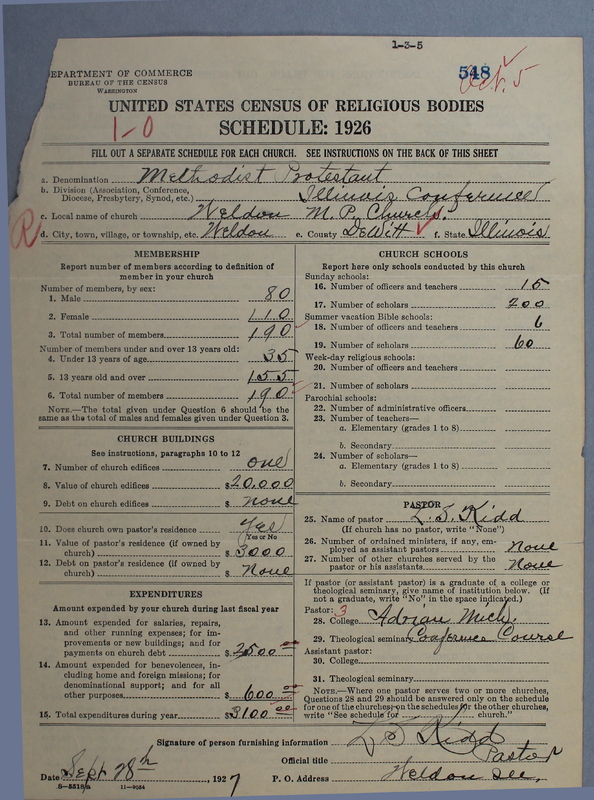 1-3-5
548
Oct. 5
DEPARTMENT OF COMMERCE
BUREAU OF THE CENSUS
WASHINGTON
UNITED STATES CENSUS OF RELIGIOUS BODIES
1-0
SCHEDULE: 1926
FILL OUT A SEPARATE SCHEDULE FOR EACH CHURCH. SEE INSTRUCTIONS ON THE BACK OF THIS SHEET
a. Denomination Methodist Protestant
b. Division (Association, Conference, Diocese, Presbytery, Synod, etc.) Illinois Conference
c. Local name of church Weldon M. P. Church.
R
d. City, town, village, or township, etc. Weldon e. County DeWitt f. State Illinois
MEMBERSHIP
Report number of members according to definition of
member in your church
Number of members, by sex:
1. Male 80
2. Female 110
3. Total number of members 190
Number of members under and over 13 years old:
4. Under 13 years of age 35
5. 13 years old and over 155
6. Total number of members 190
NOTE.—The total given under Question 6 should be the
same as the total of males and females given under Question 3.
CHURCH BUILDINGS
See instructions, paragraphs 10 to 12
7. Number of church edifices one
8. Value of church edifices $20,000
9. Debt on church edifices $ none
10. Does church own pastor's residence Yes
Yes or No
11. Value of pastor's residence (if owned by
church) $3000
12. Debt on pastor's residence (if owned by
church) $ None
EXPENDITURES
Amount expended by church during last fiscal year
13. Amount expended for salaries, repairs,
and other running expenses; for im-
provements or new buildings; and for
payments on church debt $2500 00
14. Amount expended for benevolences, in-
cluding home and foreign missions; for
denominational support; and for all
other purposes $ 600 00
15. Total expenditures during year $3100 00
CHURCH SCHOOLS
Report here only schools conducted by this church
Sunday schools:
16. Number of officers and teachers 15
17. Number of scholars 200
Summer vacation Bible schools:
18. Number of officers and teachers 6
19. Number of scholars 60
Week-day religious schools:
20. Number of officers and teachers
21. Number of scholars
Parochial schools:
22. Number of administrative officers
23. Number of teachers—
a. Elementary (grades 1 to 8)
b. Secondary
24. Number of scholars—
a. Elementary (grades 1 to 8)
b. Secondary
PASTOR
25. Name of pastor L. S. Kidd
(If church has no pastor, write "None")
26. Number of ordained ministers, if any, em-
ployed as assistant pastors None
27. Number of other churches served by the
pastor or his assistants None
If pastor (or assistant pastor) is a graduate of a college or
theological seminary, give name of institution below. (If
not a graduate, write "No" in the space indicated.)
Pastor: 3
28. College Adrian Mich.
29. Theological seminary Conference Course
Assistant pastor:
30. College
31. Theological seminary
NOTE.—Where one pastor serves two or more churches,
Questions 28 and 29 should be answered only on the schedule
for one of the churches; on the schedules for the other churches,
write "See schedule for church."
Signature of person furnishing information L S Kidd
Official title Pastor
Date Sept 28th, 1927 P. O. Address Weldon Ill,
8-5518a 11-9054